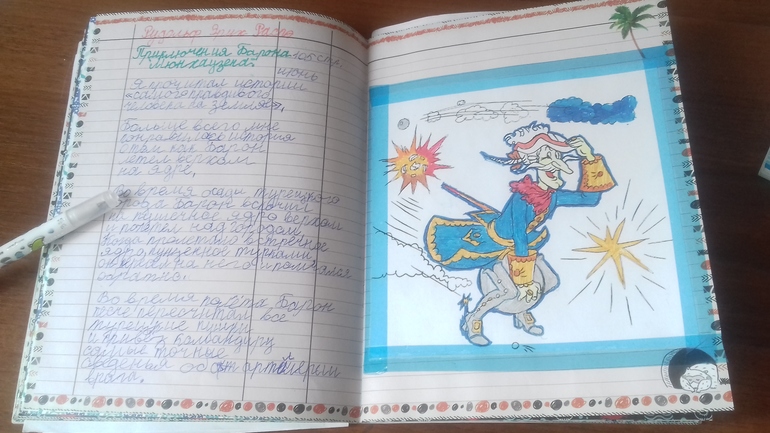 Рудольф Эрих Распе
Приключения Барона 106 стр.
Мюнхаузена" июнь
Я прочитал истории
"самого правдивого
человека на земле",
Больше всего мне
понравилась история
о том как Барон
летел верхом
на ядре,
Во время осады турецкого
города Барон вскочил
на пушечное ядро верхом
и полетел над городом
Когда пролетало встречное
ядро пущенное турками,
обратно.
Во время полёта Барон
пересчитал все
турецкие пушки
и привёз командиру
самые точные
сведенья об артилерии
врага.